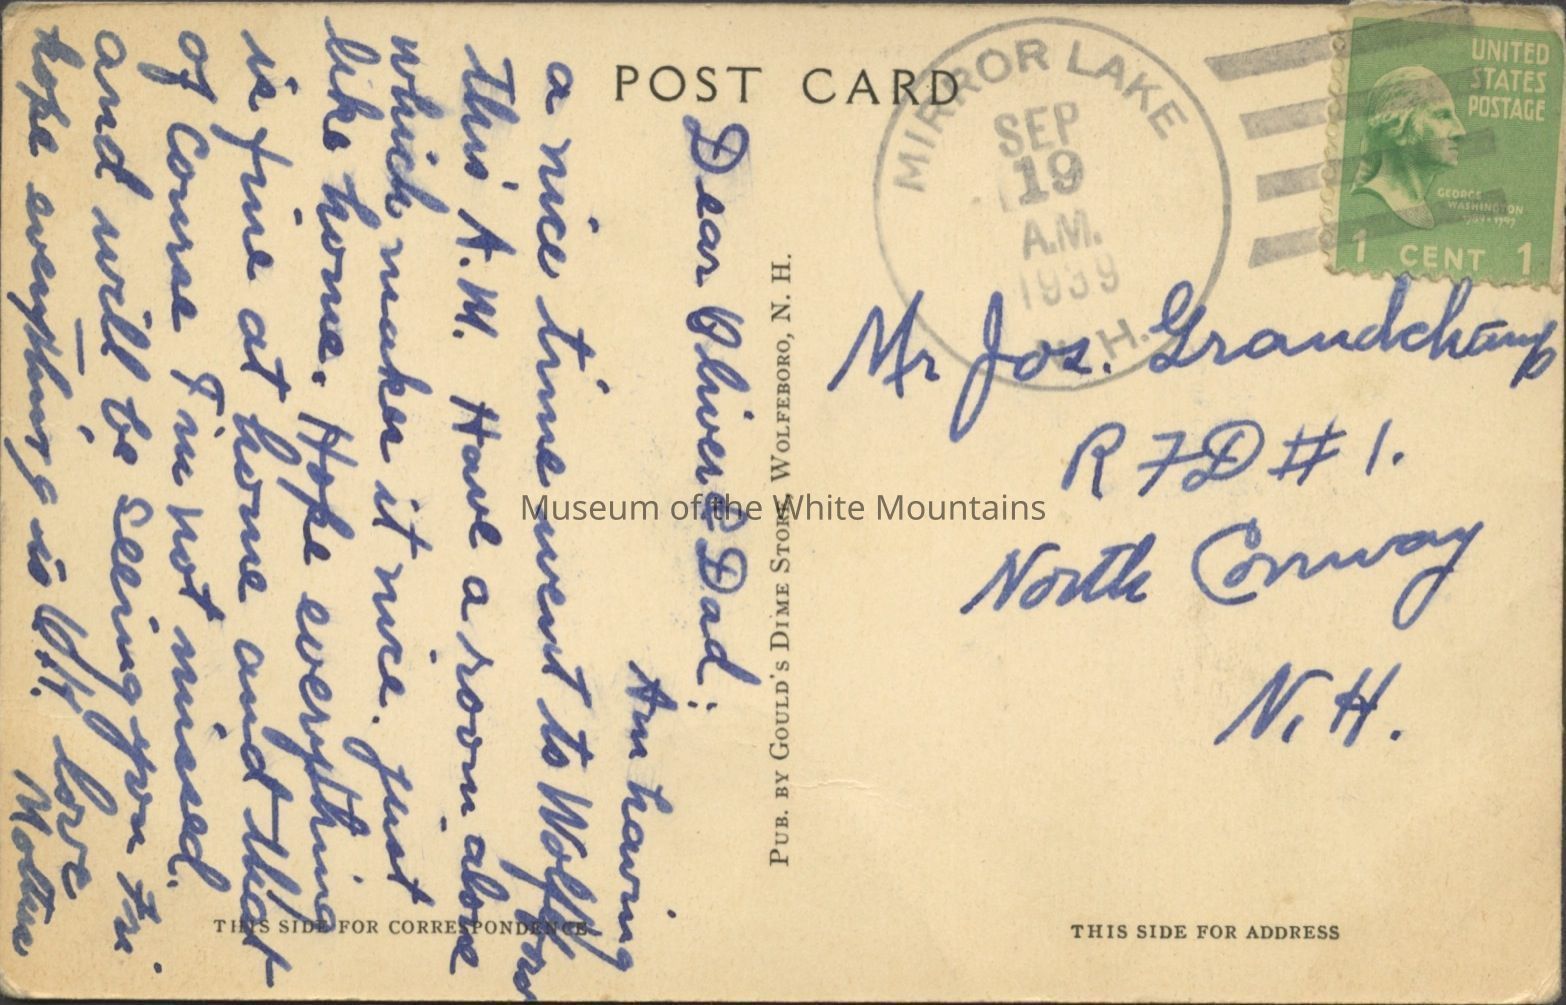 POST CARD
MIRROR LAKE
SEP
19
A.M.
1939
N.H.
UNITED
STATES
POSTAGE
GEORGE
WASHINGTON
1 CENT 1
Dear Oliver & Dad:
Am having
a nice time went to Wolfboro
this A.M. Have a room alone
which makes it nice. just
like home. Hope everything
is fine at home and that
of Course I'm not missed.
and will be seeing you Fri.
hope everything is O.K. love
Mother
PUB. BY GOULD'S DIME STORE, WOLFEBORO, N. H.
Mr Jos. Grandchamp
R F D # 1.
North Conway
N. H.
Museum of the White Mountains
THIS SIDE FOR CORRESPONDENCE
THIS SIDE FOR ADDRESS